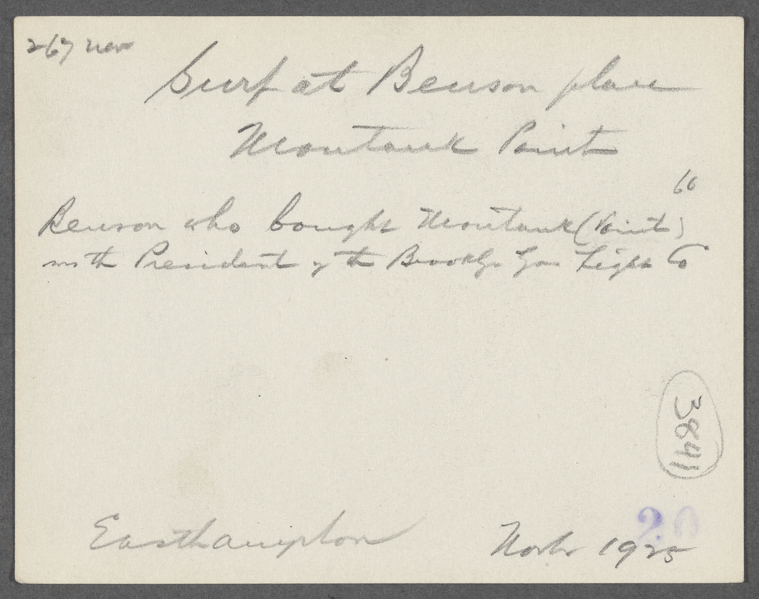 267 nev
Surf at Benson place
Montauk Point
60
Benson who bought Montauk (Point)
President of the Brooklyn Gas Light Co
3841
20
Easthampton Novbr 1925